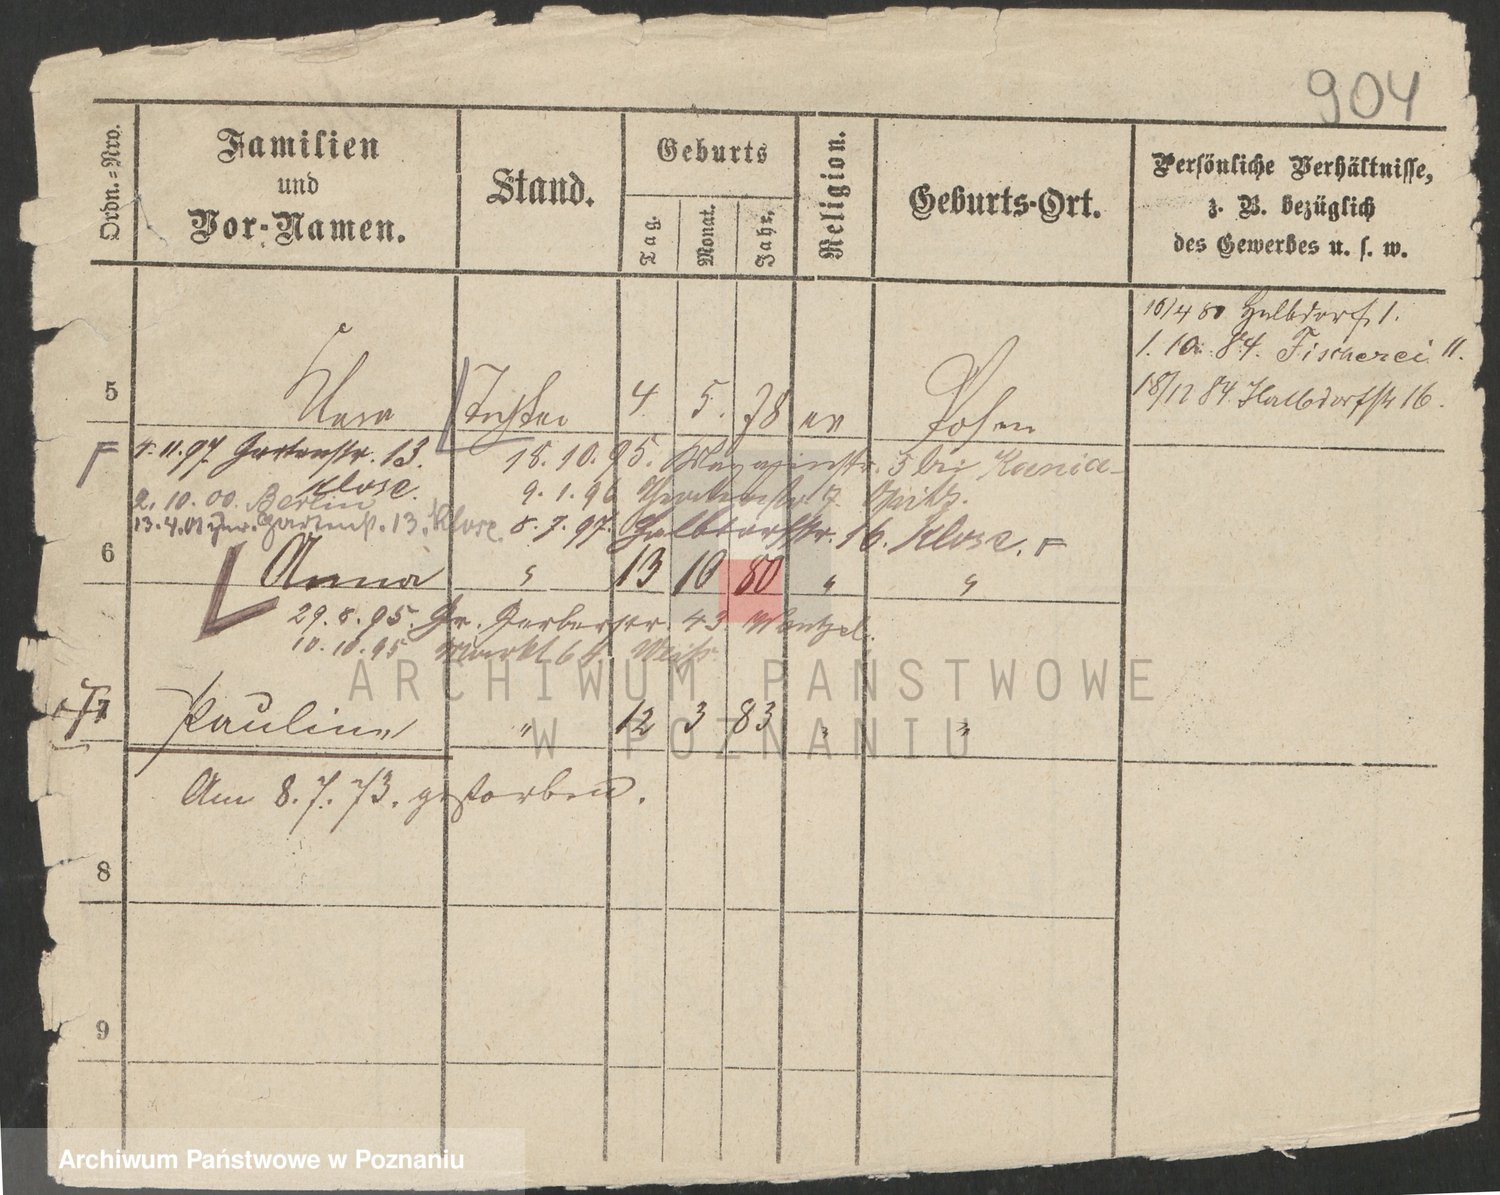 904
Ordn.=Nro.
Familien
und
Vor=Namen.
Stand.
Geburts
Tag.
Monat.
Jahr.
Religion.
Geburts=Ort.
Persönliche Verhältnisse,
z. B. bezüglich
des Gewerbes u. s. w.
16/4 80 Halbdorf 1.
1. 10. 84. Fischerei 11.
18/12 84 Halbdorfstr 16.
5 Tochter 4 5. 78 ev Posen
4. 11. 97. Gartenstr. 13.
Klose.
18. 10. 95. 5 bei Kania
2. 10. 00. Berlin
9. 1. 96
13. 4. 01 Gartenst. 13. Klose.
8. 7. 97. Halbdorfstr. 16. Klose.
6 Anna " 13 10 80 " "
29. 8. 95. Gr. Gerberstr. 43
10. 10. 95 Markt 64
7 Pauline " 12 3 83 " "
Am 8. 7. 73. gestorben.
8
9
ARCHIWUM PAŃSTWOWE
W POZNANIU
Archiwum Państwowe w Poznaniu